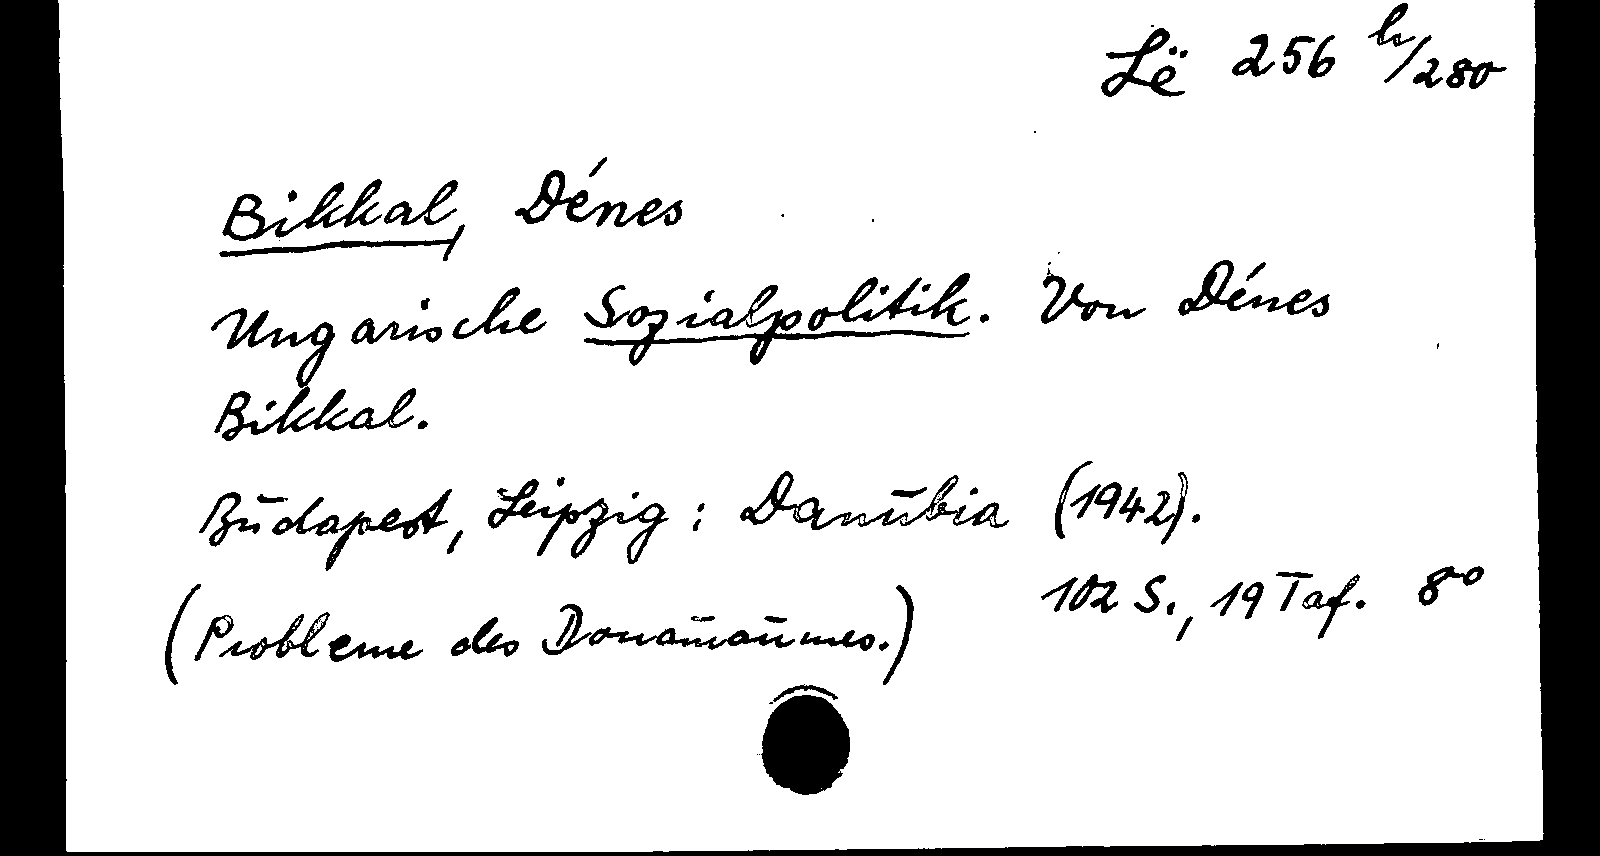 Lë 256 h/280
Bikkal, Dénes
Ungarische Sozialpolitik. Von Dénes
Bikkal.
Budapest, Leipzig: Danubia (1942).
102 S., 19 Taf. 8°
(Probleme des Donauraumes.)